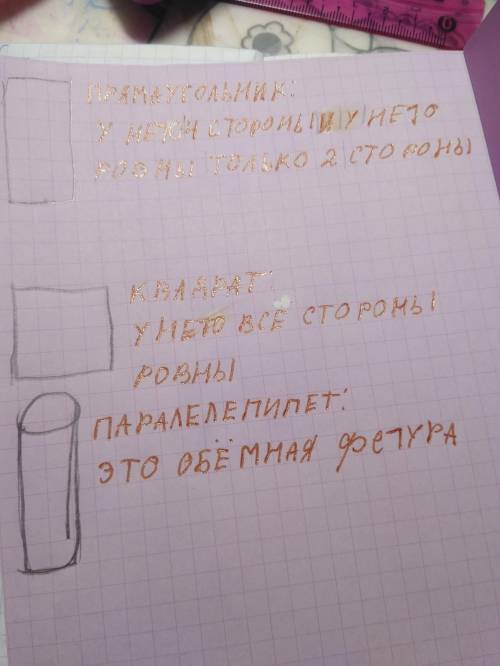 ПРЯМАУГОЛЬНИК:
У НЕГО 4 СТОРОНЫ И У НЕГО
РОВНЫ ТОЛЬКО 2 СТОРОНЫ
КВАДРАТ:
У НЕГО ВСЕ СТОРОНЫ
РОВНЫ
ПАРАЛЕЛЕПИПЕТ:
ЭТО ОБЁМНАЯ ФЕГУРА